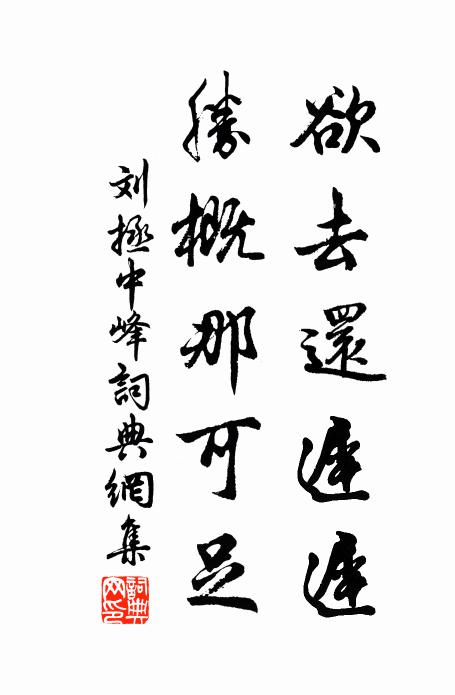 欲去還遲遲
勝概那可足
刘拯中峰詞典網集
詞典網印